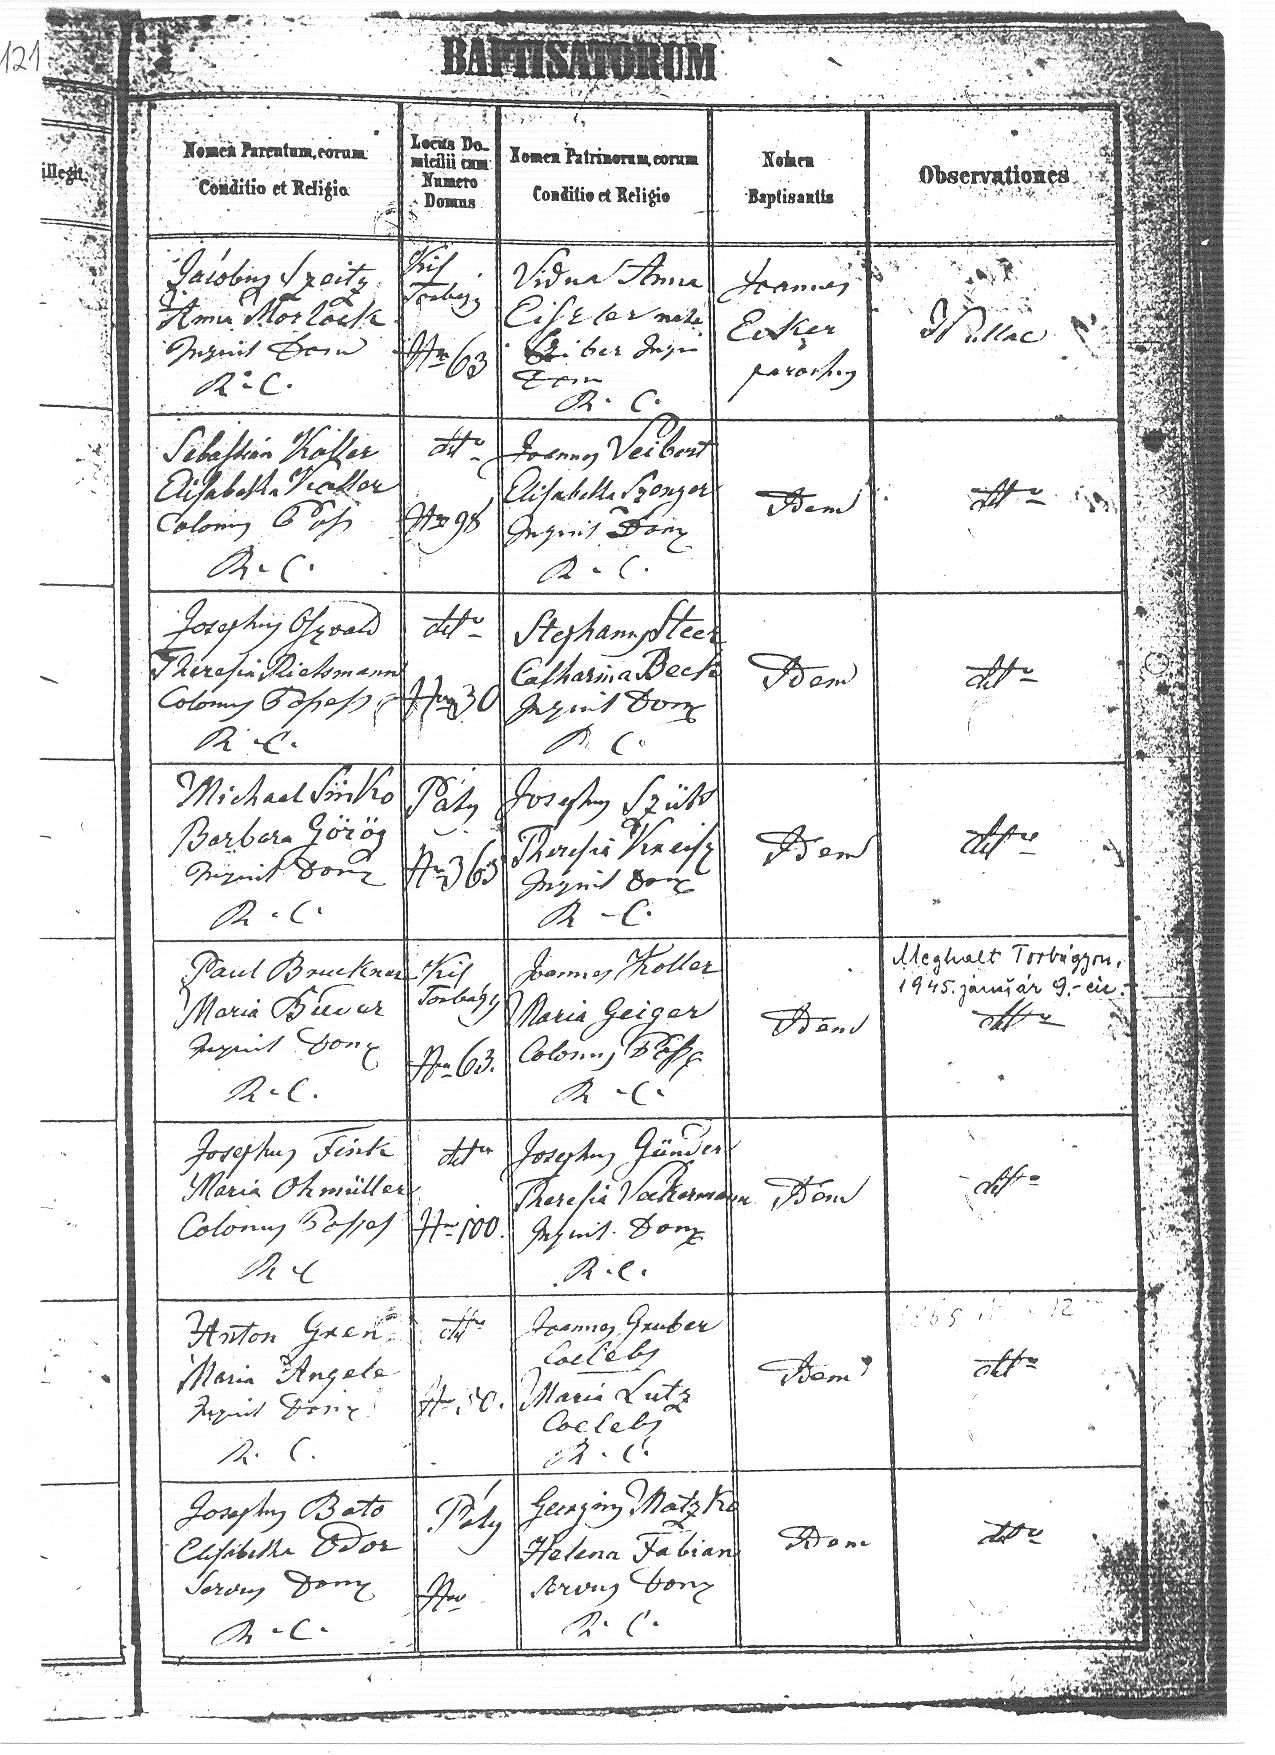 121
BAPTISATORUM
illegit.
Nomen Parentum, eorum
Conditio et Religio
Locus Do-
micilii cum
Numero
Domus
Nomen Patrinorum, eorum
Conditio et Religio
Nomen
Baptisantis
Observationes
Jacobus Szeitz
Anna
Inquil Dom
R. C.
Kis
Torbágy
Nro 63
Vidua Anna
Eiszler nata
Inqu
Dom
R. C.
Joannes
Ecker
parochus
Nullae
Sebastian Koller
Elisabetha Koller
Colonus Poss
R. C.
dtto
Nro 98
Joannes Seibert
Elisabetha Szenger
Inquil Dom
R. C.
Idem
dtto
Josephus Oszvald
Theresia Rietsmann
Colonus Possess
R. C.
dtto
Nro 30
Stephanus Steer
Catharina Beck
Inquil Dom
R. C.
Idem
dtto
Michael Sinko
Barbara Görög
Inquil Dom
R. C.
Páty
Nro 363
Josephus Szüts
Theresia Kreisz
Inquil Dom
R. C.
Idem
dtto
Paul Bruckner
Maria
Inquil Dom
R. C.
Kis
Torbágy
Nro 63.
Joannes Koller
Maria Geiger
Colonus Poss
R. C.
Idem
Meghalt Torbágyon,
1945. január 9.-én.
dtto
Josephus Fink
Maria Ohmüller
Colonus Posses
R. C
dtto
Nro 100.
Josephus Günder
Theresia Vackermann
Inquil. Dom
R. C.
Idem
dtto
Anton Gren
Maria Angele
Inquil Dom
R. C.
dtto
Nro
Joannes Gruber
Coelebs
Maria Lutz
Coelebs
R. C.
Idem
dtto
Josephus Bato
Elisabetha Odor
Servus Dom
R. C.
Páty
Nro
Georgius Matzko
Helena Fabian
Servus Dom
R. C.
Idem
dtto